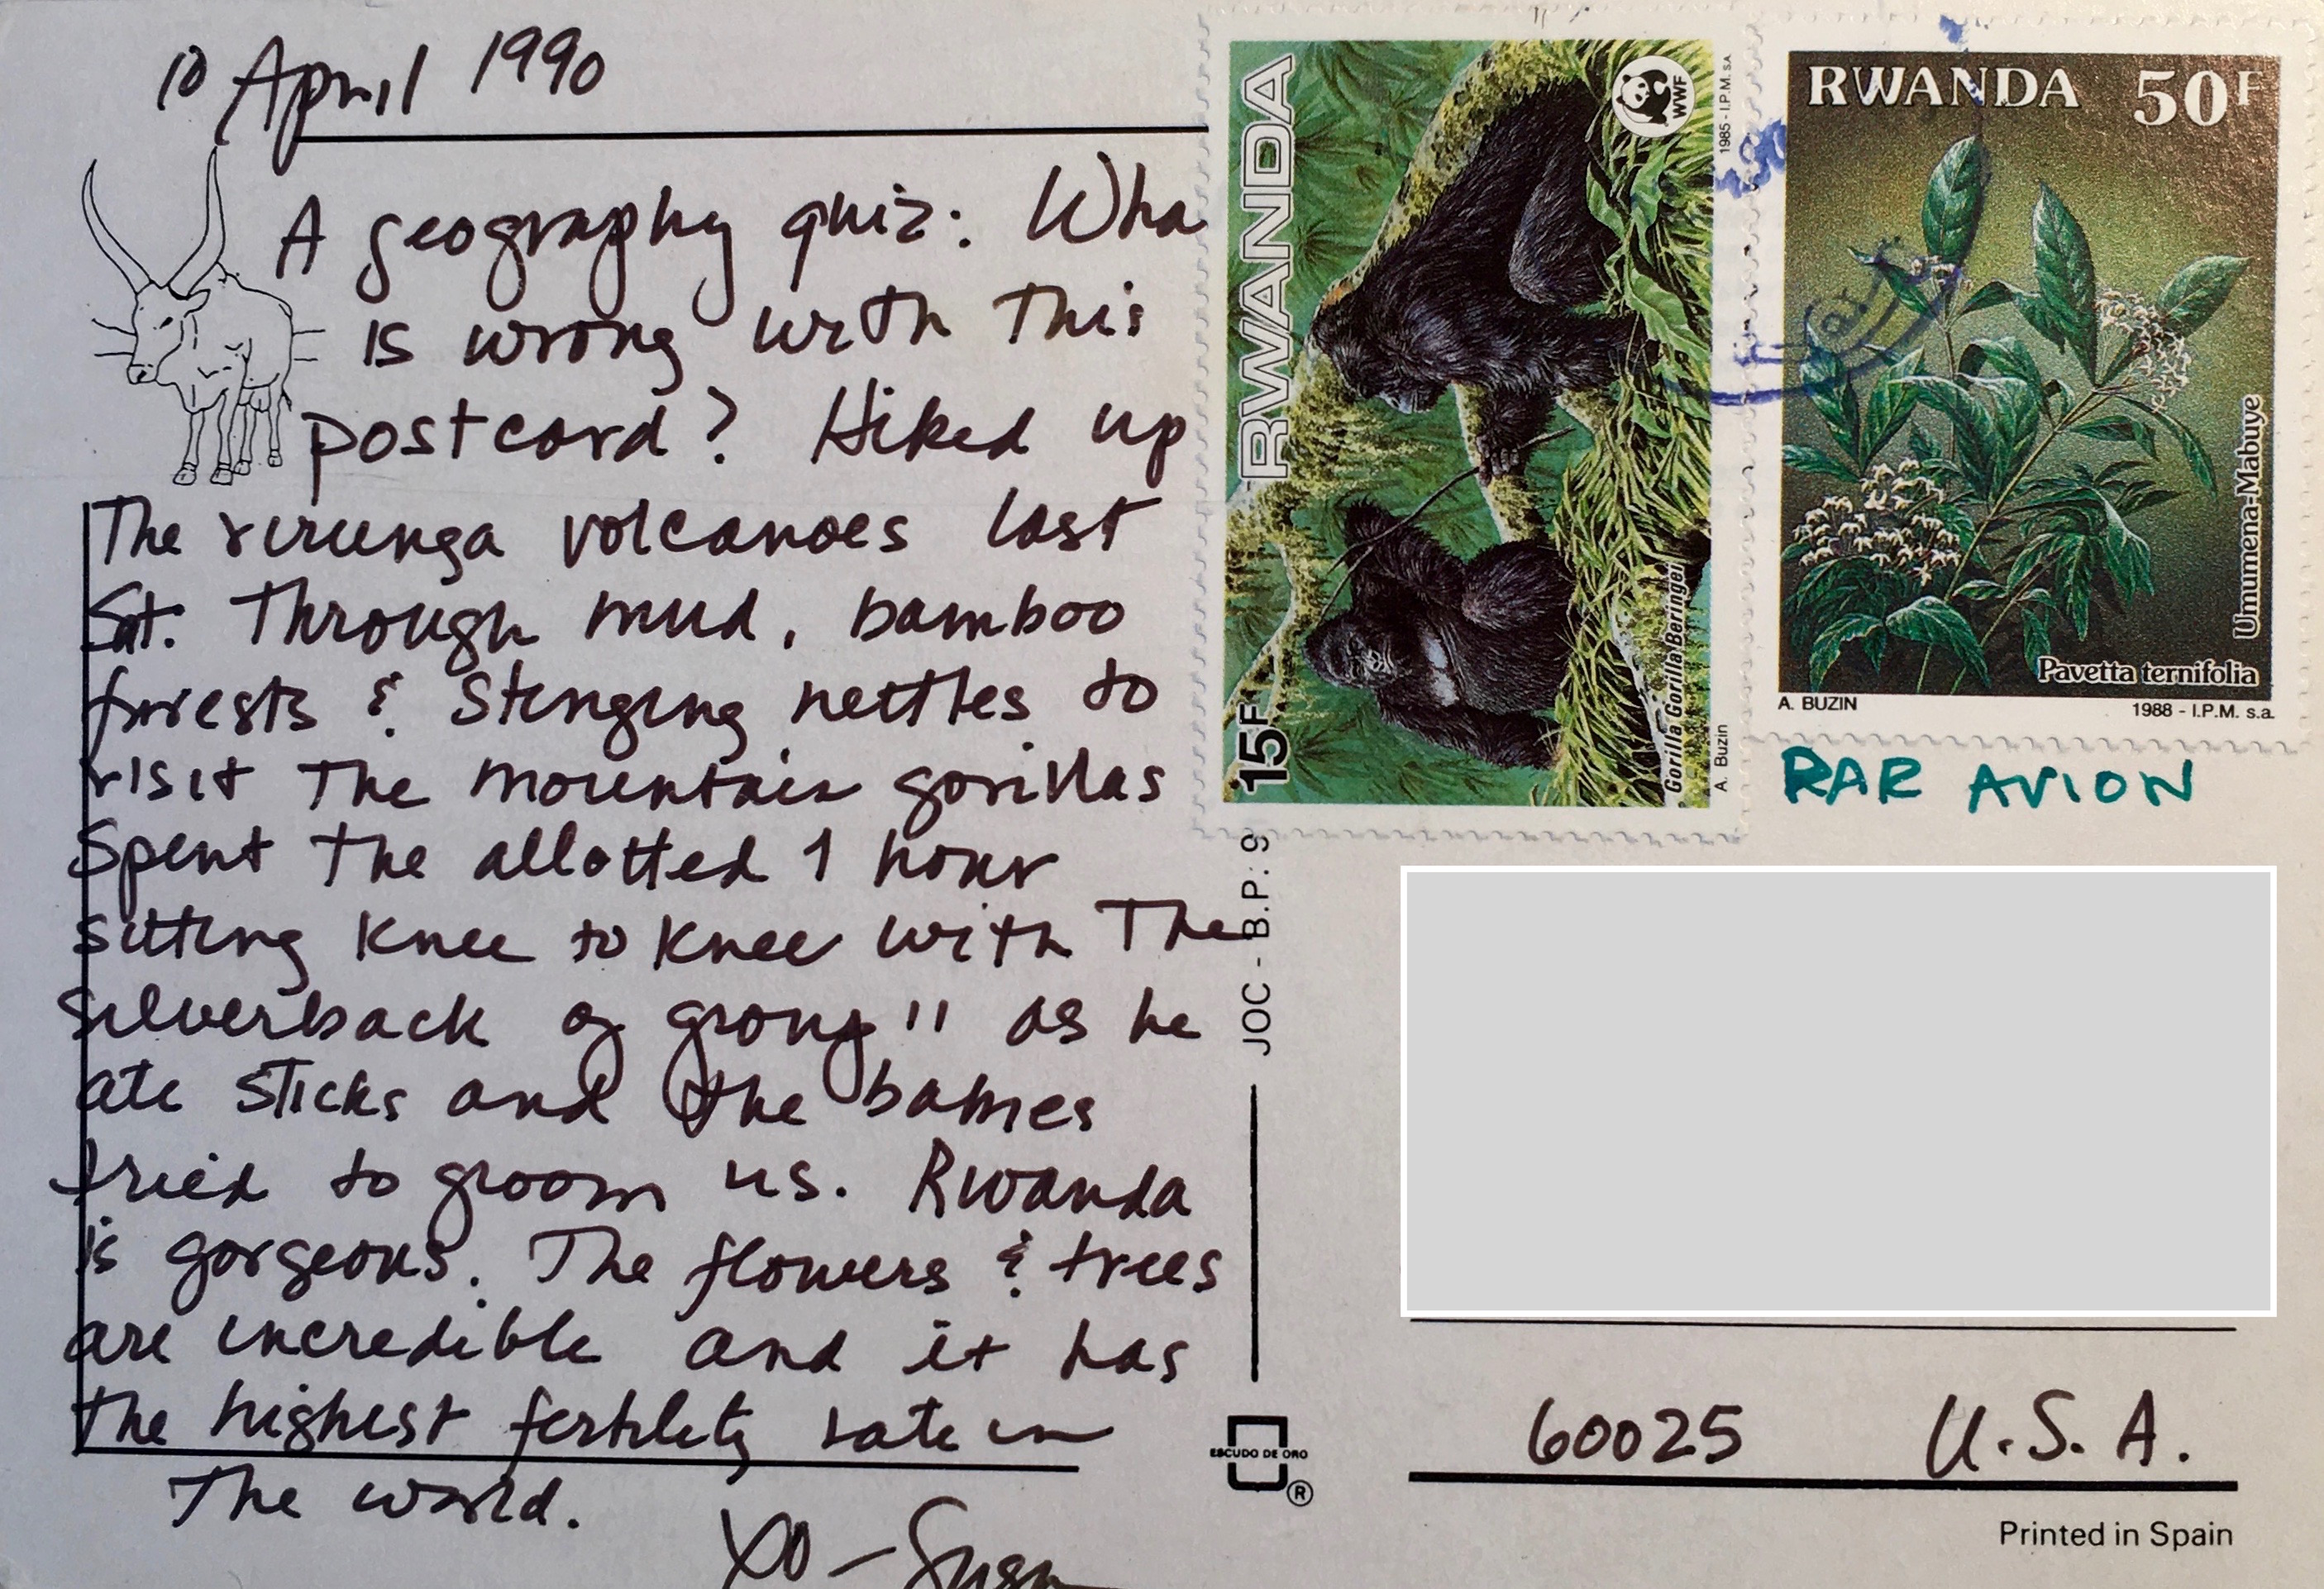 10 April 1990
A geography quiz: Wha
is wrong with this
postcard? Hiked up
The virunga volcanoes last
Sat. Through mud, bamboo
forests & Stinging nettles to
visit The mountain gorillas
Spent The allotted 1 hour
sitting knee to knee with The
silverback of group 11 as he
ate sticks and the babies
tried to groom us. Rwanda
is gorgeous. The flowers & trees
are incredible and it has
the highest fertility rate in
The world.
XO - Susan
RWANDA
15F
Gorilla Gorilla Beringei
WWF
A. Buzin
1985 - I.P.M. SA
RWANDA 50F
Umumena-Mabuye
Pavetta ternifolia
A. BUZIN
1988 - I.P.M. s.a.
PAR AVION
JOC - B.P.: 9
ESCUDO DE ORO
®
60025 U.S.A.
Printed in Spain